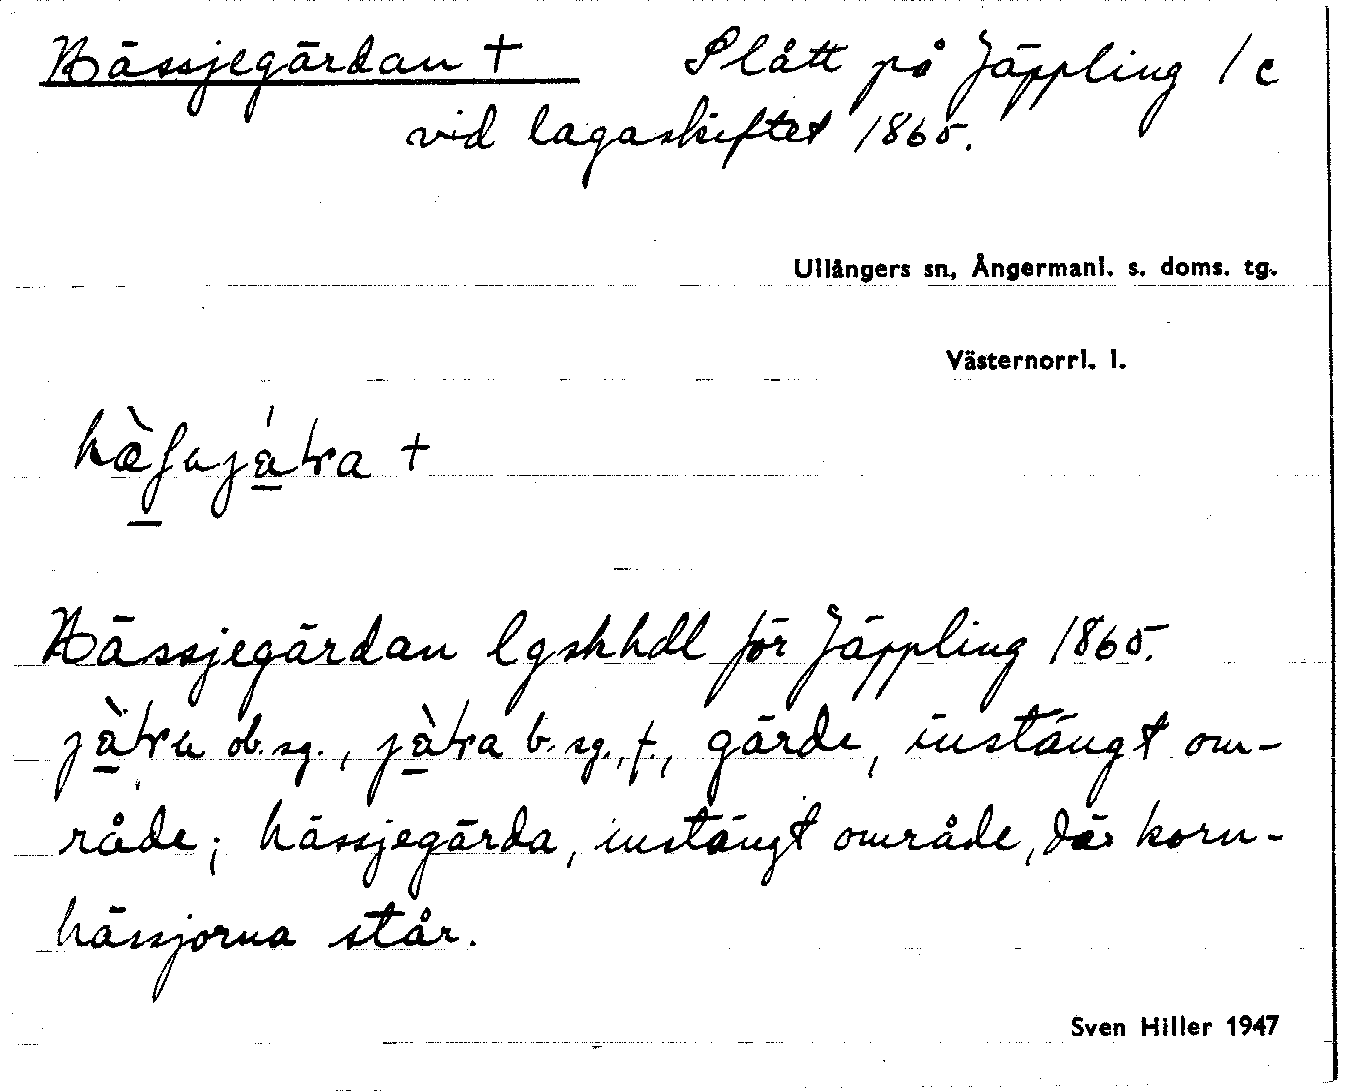 Hässjegärdan + Slått på Jäppling 1c
vid lagaskiftet 1865.
Ullångers sn, Ångermanl. s. doms. tg.
Västernorrl. l.
Hässjegärdan lgskhdl för Jäppling 1865.
ob. sg., b. sg., f., gärde, instängt om-
råde; hässjegärda, instängt område, där korn-
hässjorna står.
Sven Hiller 1947